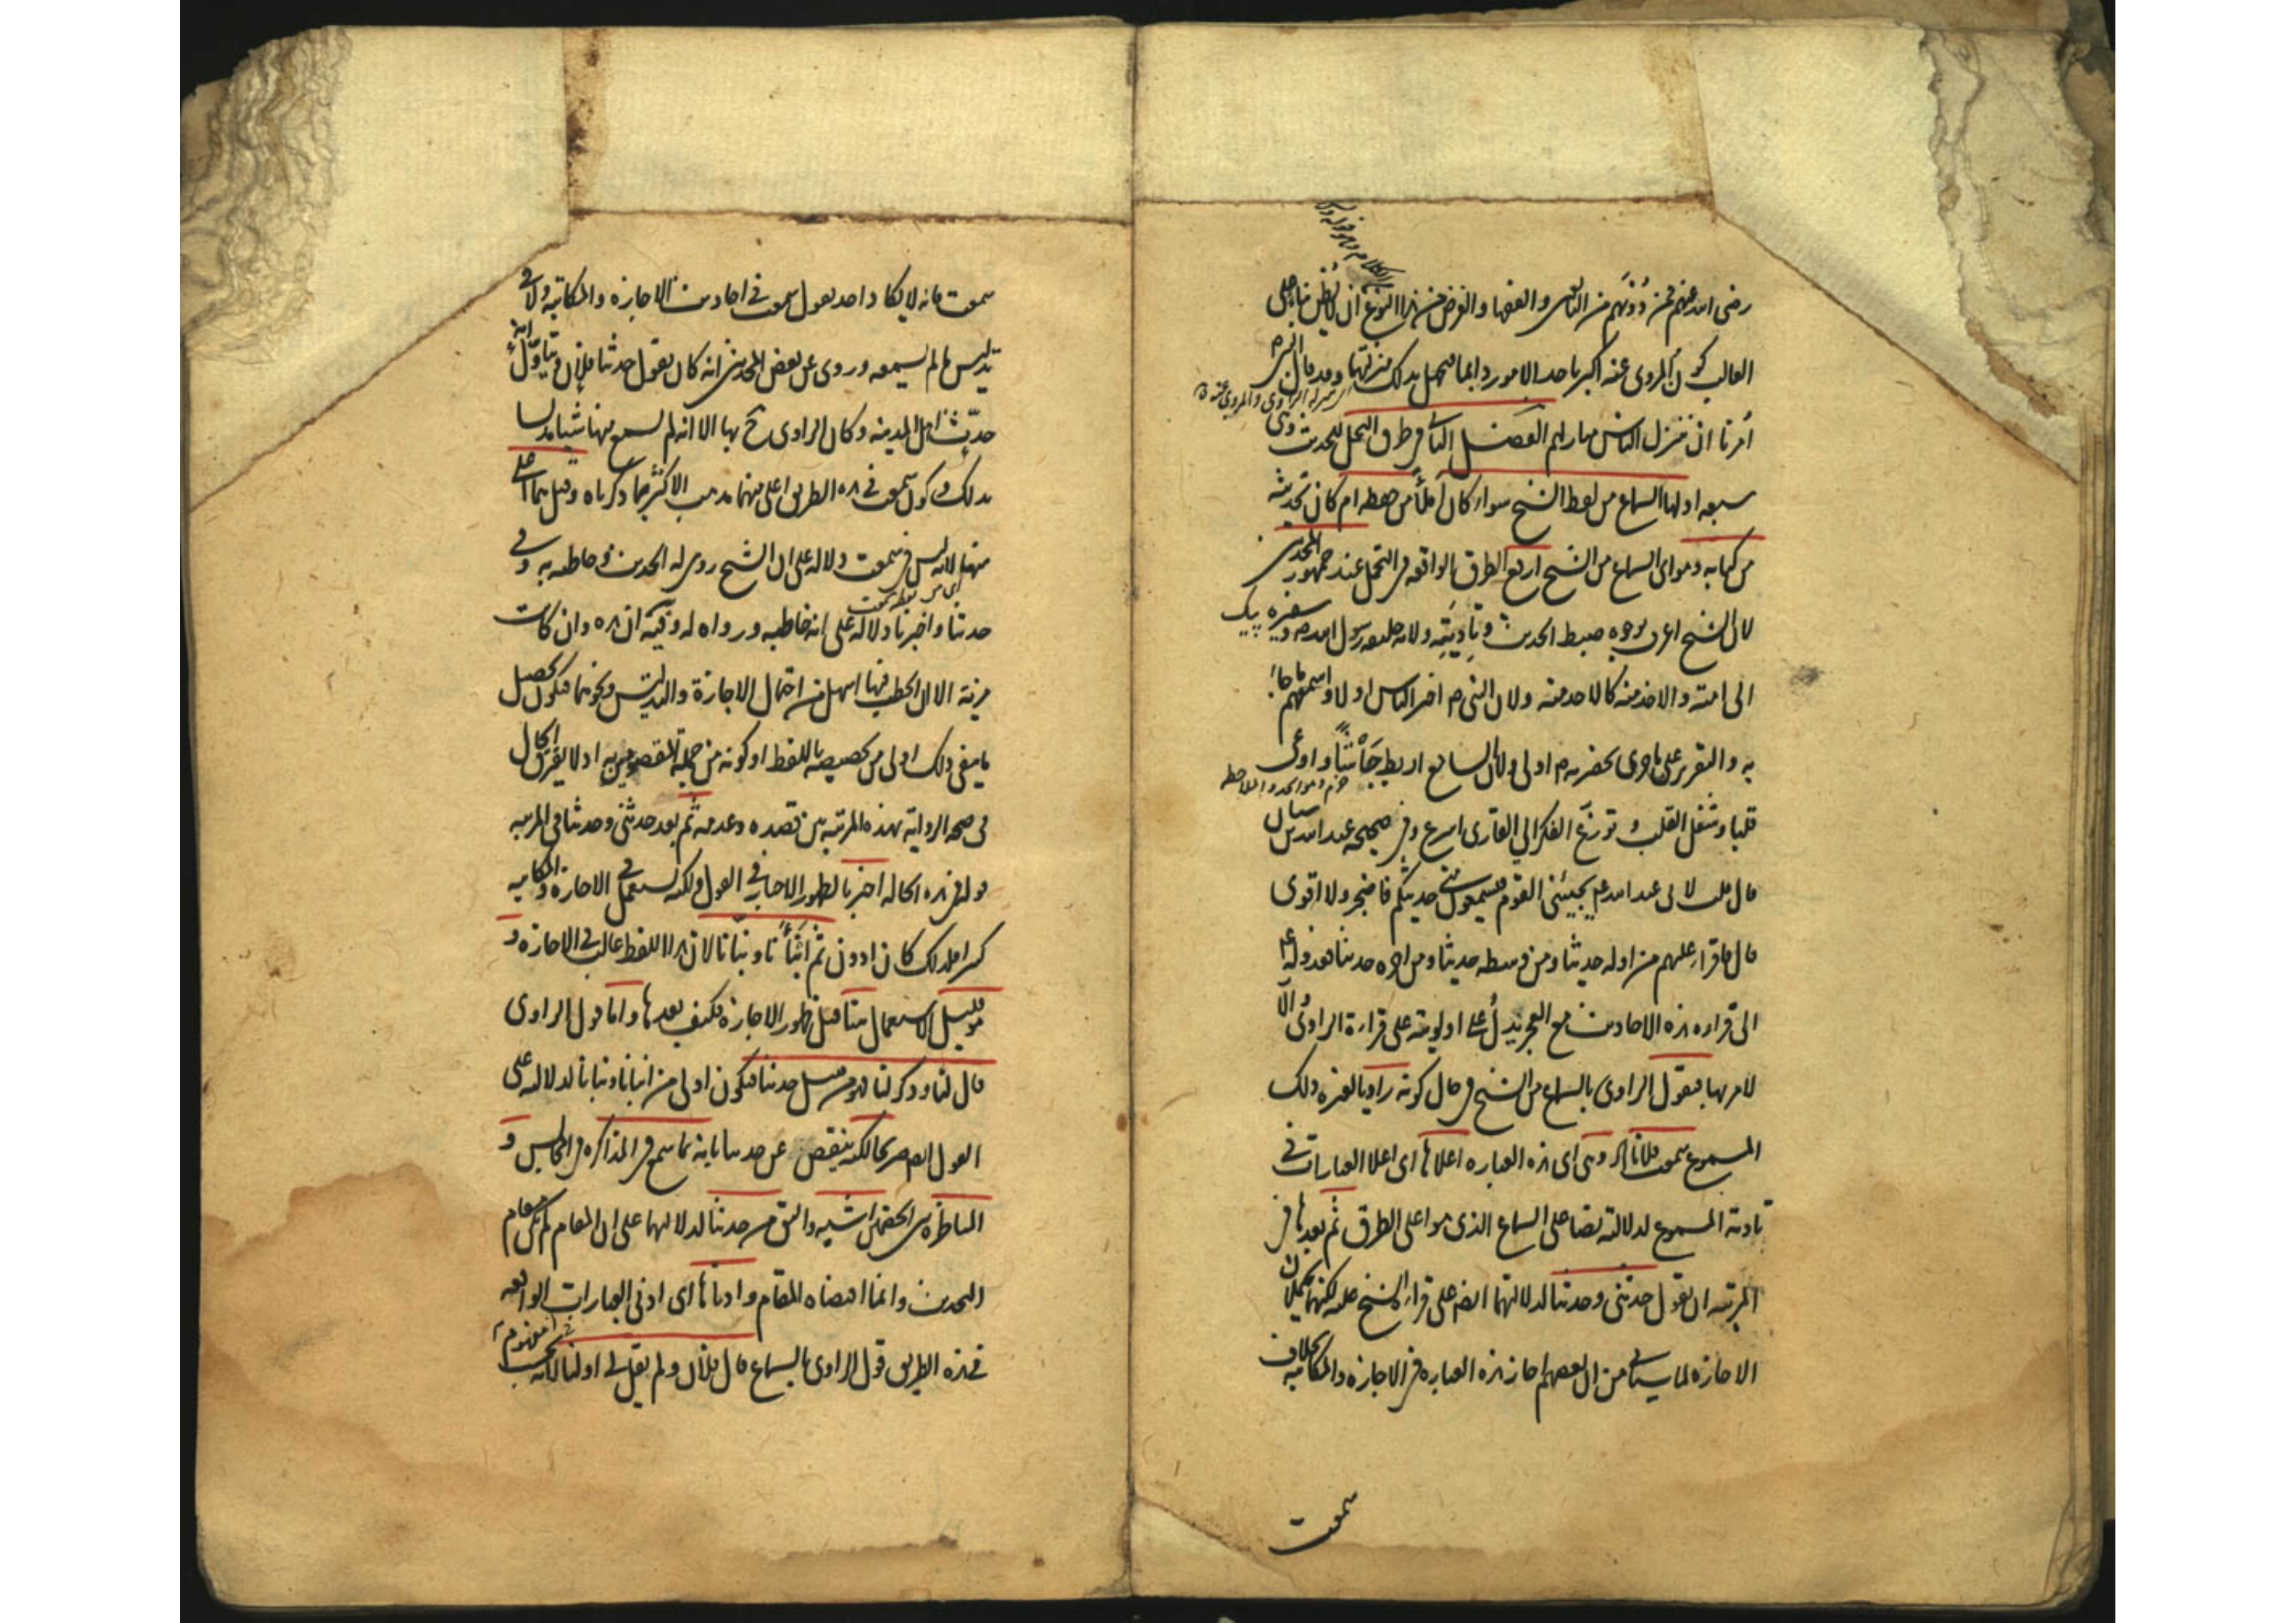 رضى الله عنهم فمن دونهم من التابعين والفقها والغرض من هذا النوع ان لا يظن بناء على
الغالب كون المروى عنه اكبر باحد الامور دايما فيجهل بذلك منزلتهما وقد قال النبى ص
امرنا ان ننزل الناس منازلهم الفصل الثانى فى طرق التحمل للحديث وهى
سبعة اولها السماع من لفظ الشيخ سواء كان املأ من حفظه ام كان تحديثه
من كتابه وهو اى السماع من الشيخ ارفع الطرق الواقعة فى التحمل عند جمهور المحدثين
لان الشيخ اعرف بوجوه ضبط الحديث وتاديته ولانه خليفة رسول الله ص وسفيره
الى امته والاخذ منه كالاخذ منه ولان النبى ص اخبر الناس اولا واسمعهم ما جاء
به والتقرير على ما جرى بحضرته ص اولى ولان السامع اربط جأشا واوعى
قلبا وشغل القلب وتوزع الفكر الى القارى اسرع وفى صحيحة عبد الله بن سنان
قال قلت لابى عبد الله ع يجيئنى القوم فيسمعون منى حديثكم فاضجر ولا اقوى
قال فاقرأ عليهم من اوله حديثا ومن وسطه حديثا ومن اخره حديثا فعدوله ع
الى قراءة هذه الاحاديث مع العجز يدل على اولويته على قراءة الراوى والا
لامر بها فيقول الراوى بالسماع من الشيخ فى حال كونه راويا لغيره ذلك
المسموع سمعت فلانا وهى اى هذه العبارة اعلاها اى اعلا العبارات فى
تادية المسموع لدلالته نصا على السماع الذى هو اعلى الطرق ثم بعدها فى
المرتبة ان يقول حدثنى وحدثنا لدلالتهما ايضا على قراءة الشيخ عليه لكنهما يحتملان
الاجازة لما سياتى من ان بعضهم اجاز هذه العبارة فى الاجازة والمكاتبة بخلاف
سمعت
سمعت فانه لا يكاد احد يقول سمعت فى احاديث الاجازة والمكاتبة ولا فى
تدليس ما لم يسمعه وروى عن بعض المحدثين انه كان يقول حدثنا فلان ويتأول انه
حدث اهل المدينة وكان الراوى ح بها الا انه لم يسمع منها شيئا مدلسا
بذلك وكون سمعت فى هذه الطريق اعلى منهما مذهب الاكثر لما ذكرناه وقيل هما اعلى
منها لانه ليس فى سمعت دلالة على ان الشيخ روى له الحديث وخاطبه به وفى
حدثنا واخبرنا دلالة على انه خاطبه ورواه له وفيه ان هذه وان كانت
مزية الا ان الخطب فيها اسهل من احتمال الاجازة والتدليس ونحوهما فيكون تحصيل
ما ينفى ذلك اولى من تخصيصه باللفظ او كونه من جملة المقصودين به اذ لا يفترق الحال
فى صحة الرواية بهذه المرتبة بين قصده وعدمه ثم بعد حدثنى وحدثنا فى المرتبة
قوله فى هذه الحالة اخبرنا لظهور الاخبار فى القول ولكنه يستعمل فى الاجازة والمكاتبة
كثيرا فلذلك كان ادون ثم انبأنا ونبأنا لان هذا اللفظ غالب فى الاجازة و
هو قليل الاستعمال هنا قبل ظهور الاجازة فكيف بعدها واما قول الراوى
قال لنا وذكر لنا فهو من قبيل حدثنا فيكون اولى من انبأنا ونبأنا لدلالته على
القول ايضا صريحا لكنه ينقص عن حدثنا بانه بما سمع فى المذاكرة فى المجالس و
المناظرة بين الخصمين اشبه واليق من حدثنا لدلالتهما على ان المقام لم يكن مقام
التحديث وانما اقتضاه المقام وادناها اى ادنى العبارات الواقعة
فى هذه الطريق قول الراوى بالسماع قال فلان ولم يقل لى او لنا لانه بحسب مفهوم